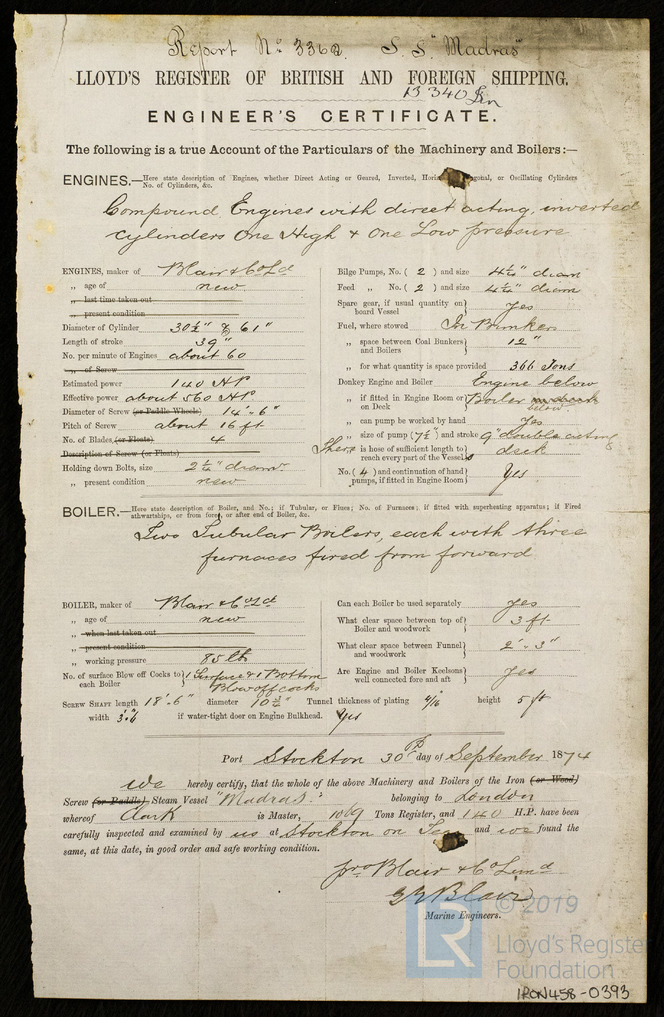 Report No 3362. S.S. "Madras"
LLOYD'S REGISTER OF BRITISH AND FOREIGN SHIPPING.
13340 Irn
ENGINEER'S CERTIFICATE.
The following is a true Account of the Particulars of the Machinery and Boilers:—
ENGINES.—Here state description of Engines, whether Direct Acting or Geared, Inverted, Horiz agonal, or Oscillating Cylinders
No. of Cylinders, &c.
Compound Engines with direct acting, inverted
cylinders One High & One Low pressure
ENGINES, maker of Blair & Co Ld
„ age of new
„ last time taken out
„ present condition
Diameter of Cylinder 30½" & 61"
Length of stroke 39"
No. per minute of Engines about 60
„ of Screw
Estimated power 140 HP
Effective power about 560 HP
Diameter of Screw (or Paddle Wheels) 14'-6"
Pitch of Screw about 16 ft
No. of Blades (or Floats) 4
Description of Screw (or Floats)
Holding down Bolts, size 2¼" diamr
„ present condition new
Bilge Pumps, No. ( 2 ) and size 4¼" diam
Feed „ No. ( 2 ) and size 4¼" diam
Spare gear, if usual quantity on board Vessel } Yes
Fuel, where stowed In Bunkers
„ space between Coal Bunkers and Boilers } 12"
„ for what quantity is space provided 366 Tons
Donkey Engine and Boiler Engine below
„ if fitted in Engine Room or on Deck } Boiler on deck below
„ can pump be worked by hand Yes
„ size of pump (7½") and stroke 9" double acting
„ is hose of sufficient length to reach every part of the Vessel } deck
No. ( 4 ) and continuation of hand pumps, if fitted in Engine Room } Yes
BOILER.—Here state description of Boiler, and No.; if Tubular, or Flues; No. of Furnaces; if fitted with superheating apparatus; if Fired
athwartships, or from fore, or after end of Boiler, &c.
Two Tubular Boilers, each with three
furnaces fired from forward
BOILER, maker of Blair & Co Ld
„ age of new
„ when last taken out
„ present condition
„ working pressure 85 lbs
No. of surface Blow off Cocks to each Boiler } 1 Surface & 1 Bottom
Blow off cocks
Can each Boiler be used separately yes
What clear space between top of Boiler and woodwork } 3 ft
What clear space between Funnel and woodwork } 2'-3"
Are Engine and Boiler Keelsons well connected fore and aft } yes
SCREW SHAFT length 18'.6" diameter 10½" Tunnel thickness of plating 4/16 height 5 ft
width 3'.6 if water-tight door on Engine Bulkhead. Yes
Port Stockton 30th day of September 1874
We hereby certify, that the whole of the above Machinery and Boilers of the Iron (or Wood)
Screw (or Paddle) Steam Vessel "Madras." belonging to London
whereof Clark is Master, 1069 Tons Register, and 140 H.P. have been
carefully inspected and examined by us at Stockton on Tees and we found the
same, at this date, in good order and safe working condition.
pro Blair & Co Limd
G Y Blair
Marine Engineers.
LR
© 2019
Lloyd's Register
Foundation
IRON458-0393